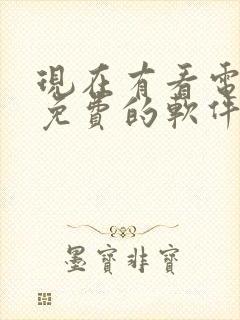 現在有看電
免費的軟件
墨寶非寶